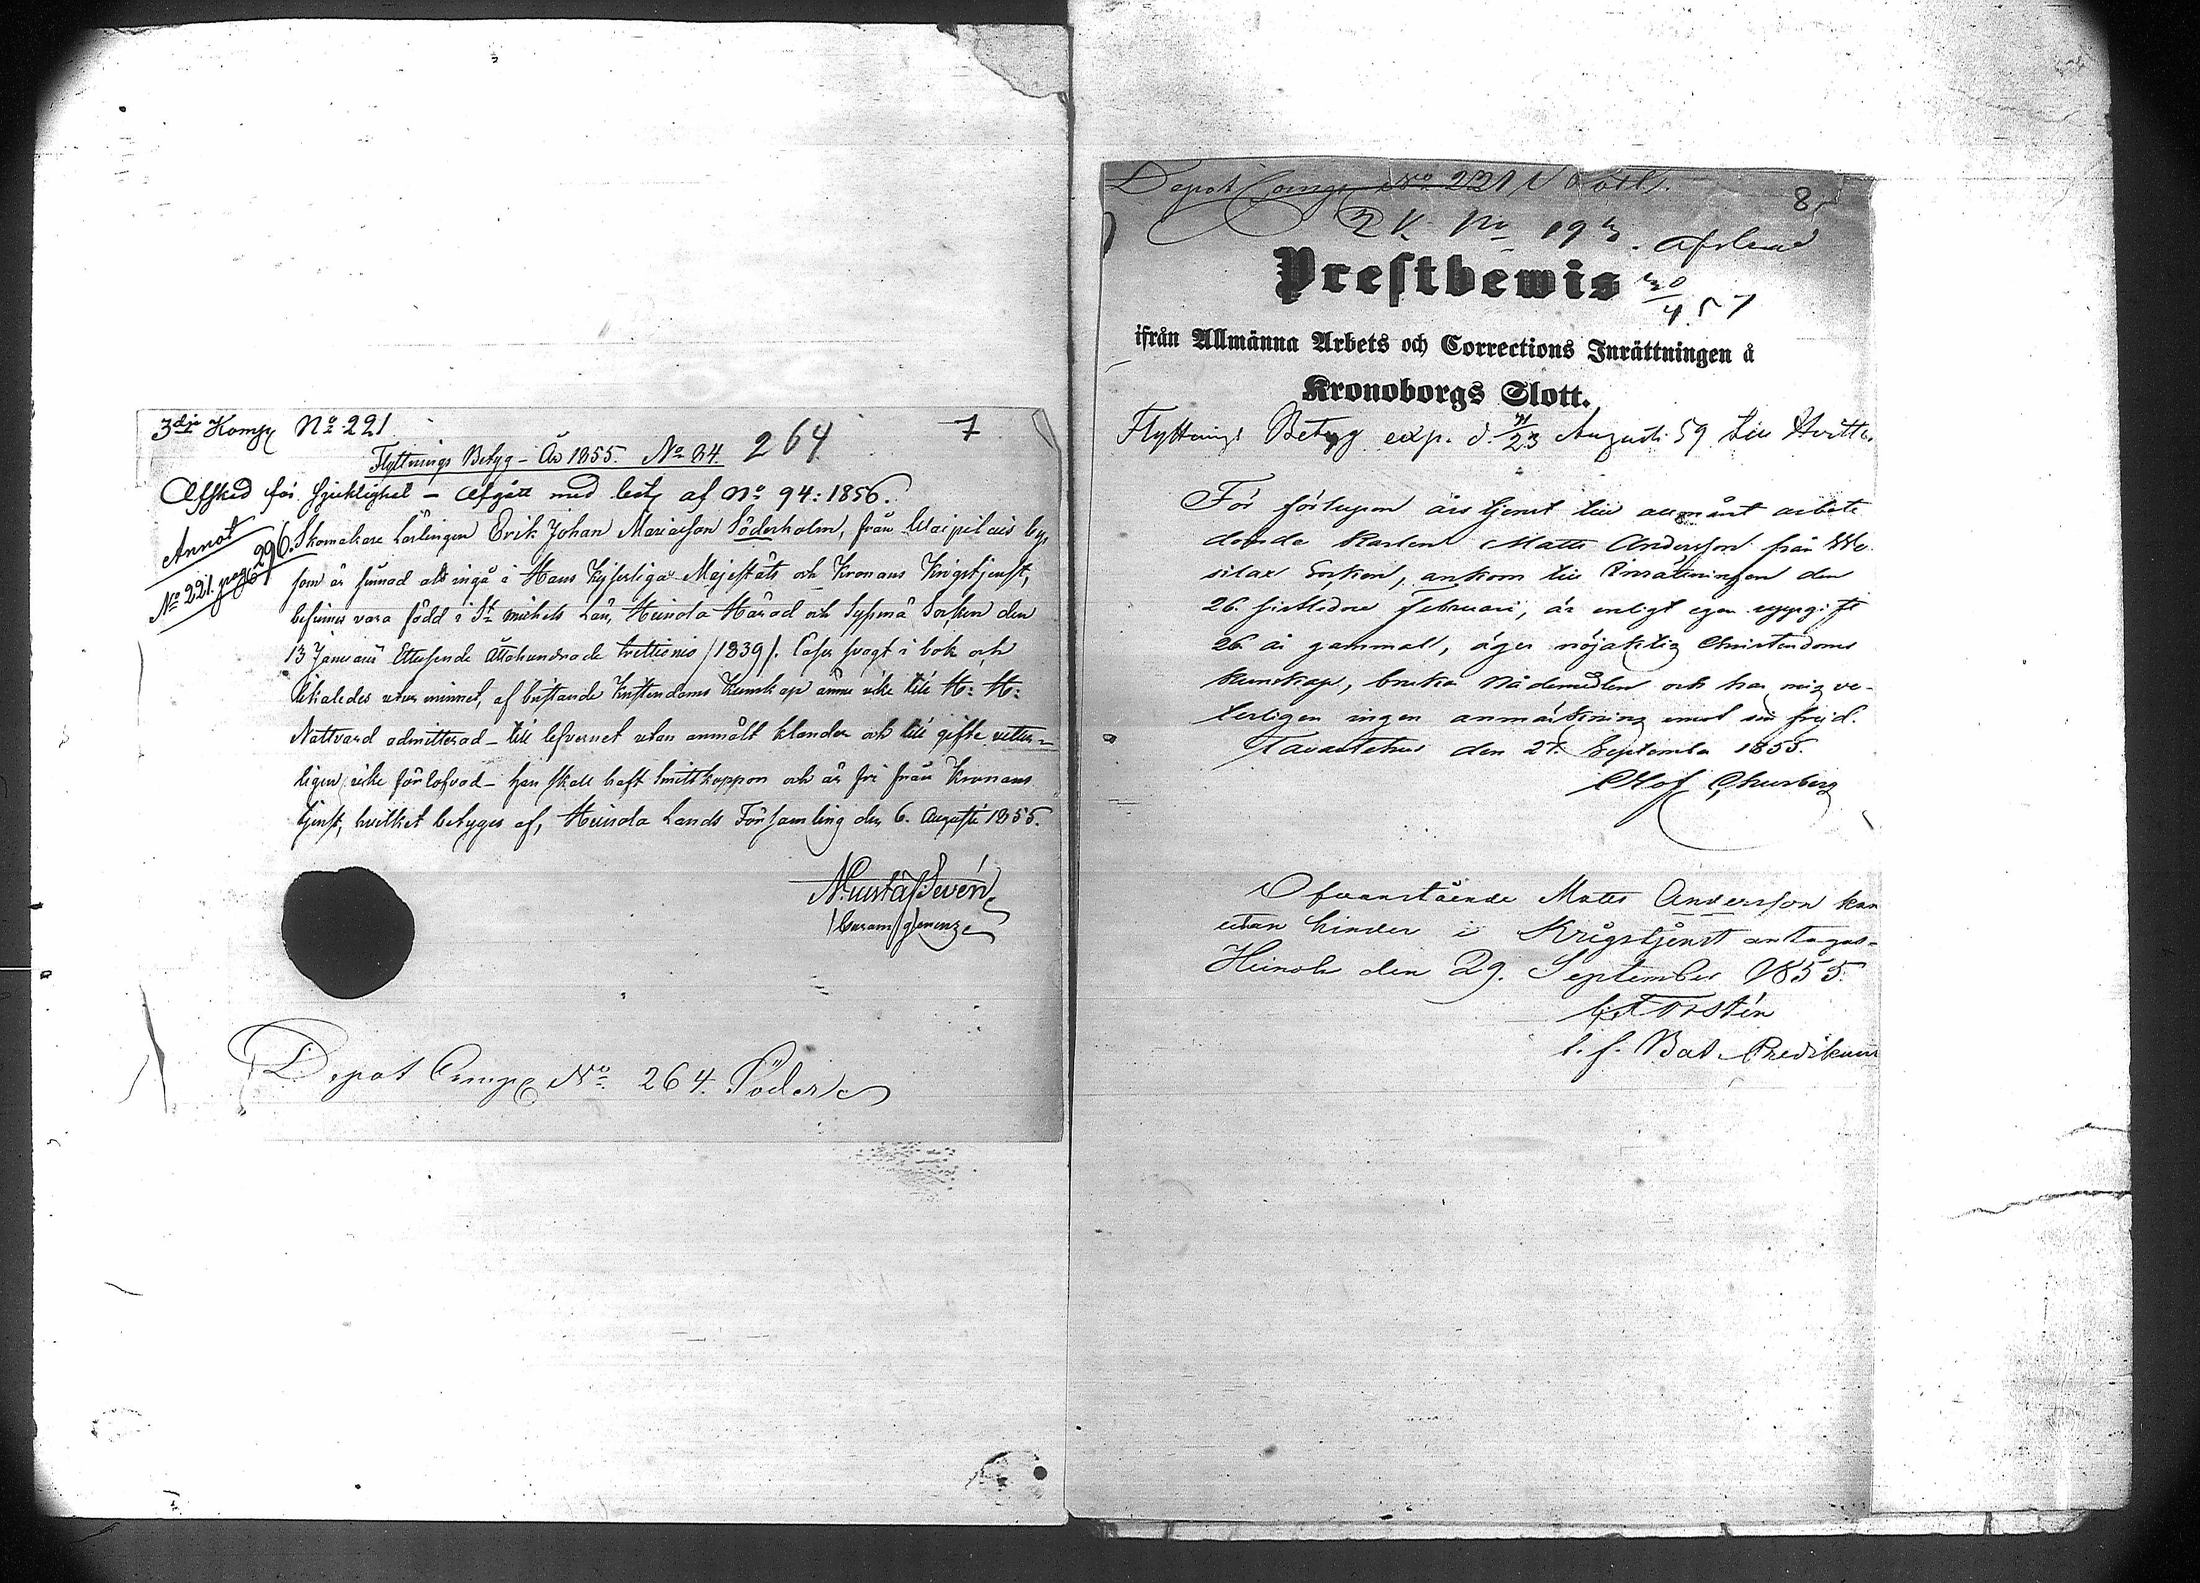 3dje Komp. No 221
7
Flyttnings Betyg - År 1855. No 84. 264
Afsked för sjuklighet - Afgått med betyg af No 94: 1856.
Annot
No 221. pag 296.
Skomakare Lärlingen Erik Johan Mariasson Söderholm, från by,
som är sinnad att ingå i Hans Kejserliga Majestäts och Kronans Krigstjenst,
befinnes vara född i St Michels Län, Heinola Härad och Sysmä Socken den
13 Januari Ettusende Åttahundrade trettionio /1839/. Läser svagt i bok och
likaledes utur minnet, af bristande Kristendoms Kunskap ännu icke till H: H:
Nattvard admitterad - till lefvernet utan anmält klander och till gifte vetter-
ligen icke förlofvad - han skall haft Smittkoppor och är fri från Kronans
tjenst, hvilket betygas af, Heinola Lands Församling den 6. Augusti 1855.
Depot Comp No 264. Söder
8
Depot Comp No 221
2 K No 193. Afsked
30/4 57
Prestbewis
ifrån Allmänna Arbets och Corrections Inrättningen å
Kronoborgs Slott.
Flyttnings Betyg exp. d. 23 Augusti 59 till
För förlupen års tjenst till allmänt arbete
dömde Karlen Matts Andersson från We-
silax Socken, ankom till Inrättningen den
26. sistledne Februari, är enligt egen uppgift
26 år gammal, äger nöjaktig Christendoms
kunskap, brukar Nådemedlen och har mig ve-
terligen ingen anmärkning emot sin frejd.
Tavastehus den 27. September 1855.
Ofvanstående Matts Andersson kan
utan hinder i Krigstjenst antagas.
Heinola den 29. September 1855.
t. f. Bat. Predikant